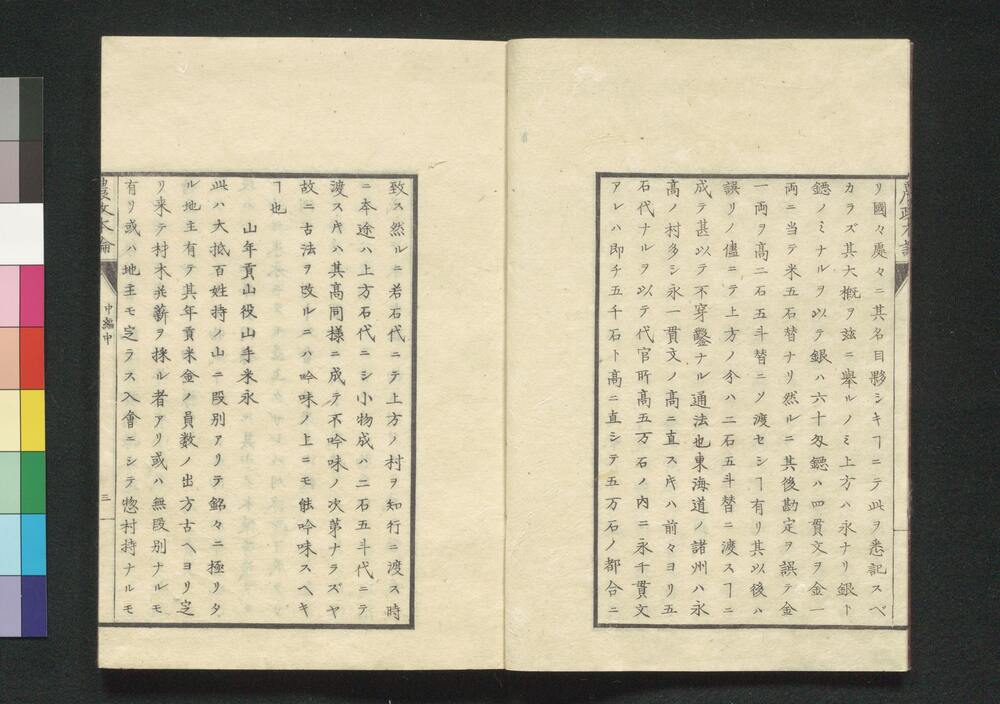 リ國々處々ニ其名目夥シキヿニテ此ヲ悉記スベ
カラズ其大概ヲ玆ニ擧ルノミ上方ハ永ナリ銀ト
鐚ノミナルヲ以テ銀ハ六十匁鐚ハ四貫文ヲ金一
両ニ当テ米五石替ナリ然ルニ其後勘定ヲ誤テ金
一両ヲ高二石五斗替ニソ渡セシヿ有リ其以後ハ
誤リノ儘ニテ上方ノ分ハ二石五斗替ニ渡スヿニ
成テ甚以テ不穿鑿ナル通法也東海道ノ諸州ハ永
高ノ村多シ永一貫文ノ高ニ直ス𪜈ハ前々ヨリ五
石代ナルヲ以テ代官所高五万石ノ内ニ永千貫文
アレハ即チ五千石ト高ニ直シテ五万石ノ都合ニ
致ス然ルニ若石代ニテ上方ノ村ヲ知行ニ渡ス時
ニ本途ハ上方石代ニシ小物成ハ二石五斗代ニテ
渡ス𪜈ハ其高同様ニ成テ不吟味ノ次第ナラズヤ
故ニ古法ヲ改ルニハ吟味ノ上ニモ能吟味スヘキ
ヿ也
山年貢山役山手米永
此ハ大抵百姓持ノ山ニ段別アリテ銘々ニ極リタ
ル地主有テ其年貢米金ノ員数ノ出方古ヘヨリ定
リ来テ村木并薪ヲ採ル者アリ或ハ無段別ナルモ
有リ或ハ地主モ定ラス入會ニシテ惣村持ナルモ
農政本論
中編中
三